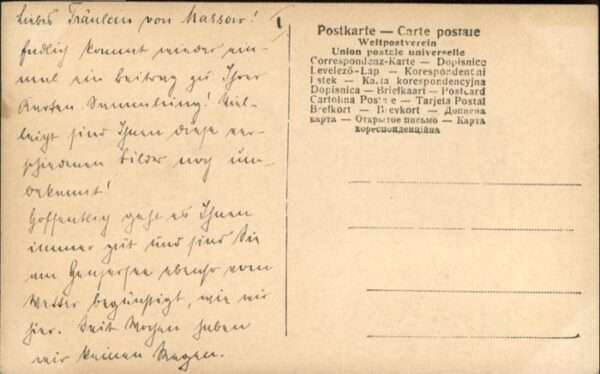 Liebes Fräulein von Massow!
Endlich kommt wieder ein-
mal ein Beitrag zu Ihrer
Karten Sammlung! Viel-
leicht sind Ihnen diese ver-
schiedenen Bilder noch un-
bekannt!
Hoffentlich geht es Ihnen
immer gut und sind Sie
am Genfersee ebenso vom
Wetter begünstigt, wie wir
hier. Seit Wochen haben
wir keinen Regen.
I
Postkarte — Carte postale
Weltpostverein
Union postale universelle
Correspondenz-Karte — Dopisnice
Levelező-Lap — Korespondentni
listek — Karta korespondencyjna
Dopisnica — Briefkaart — Postcard
Cartolina Postale — Tarjeta Postal
Brefkort — Brevkort — Дописна
карта — Открытое письмо — Карта
кореспонденційна